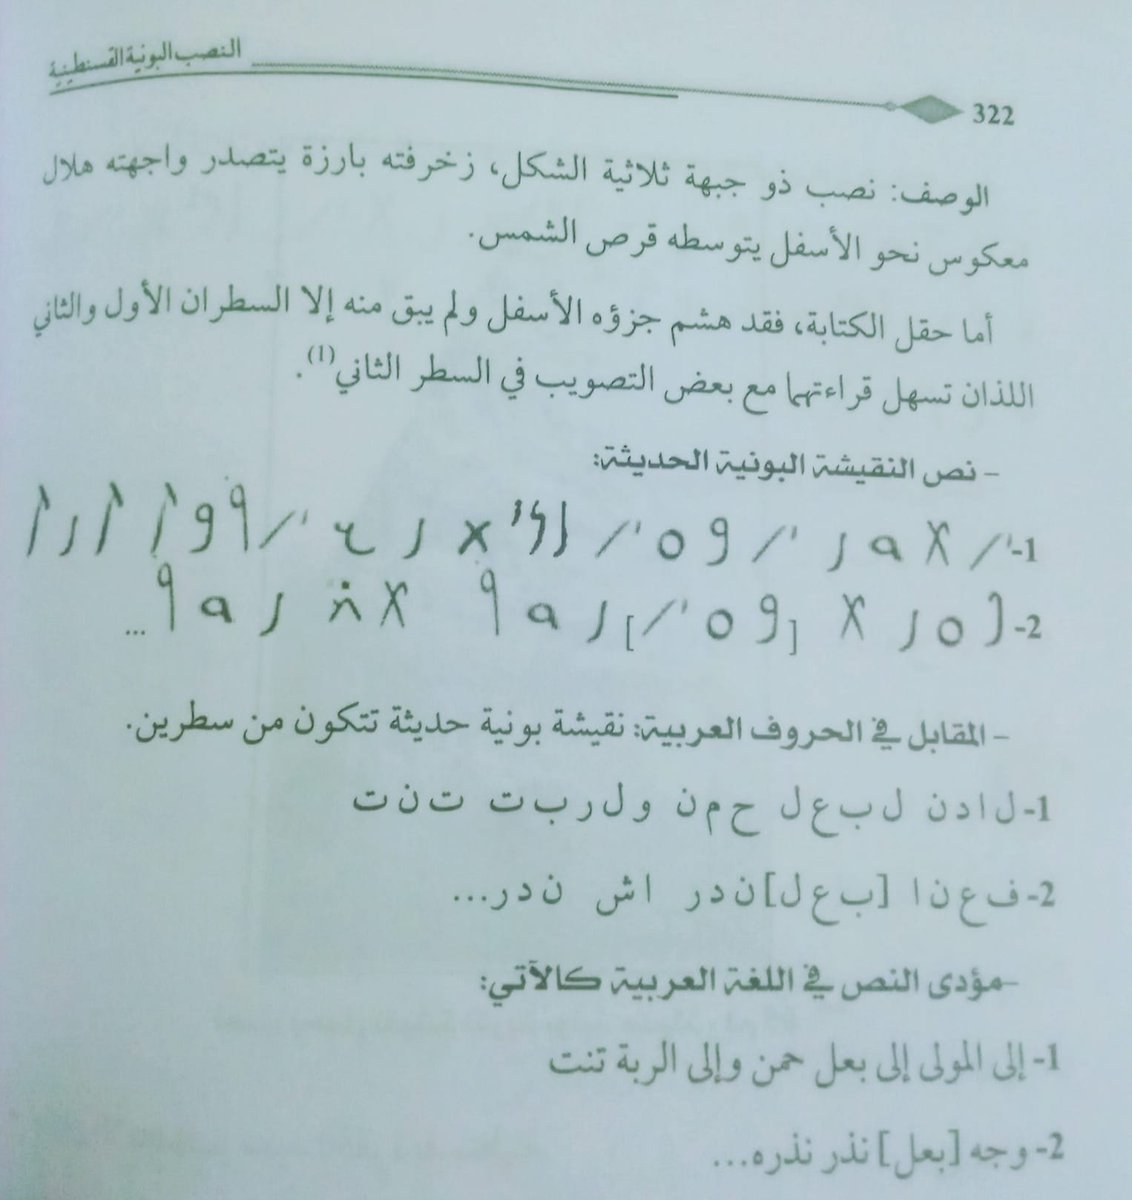 النصب البونية القسنطينية
322
الوصف: نصب ذو جبهة ثلاثية الشكل، زخرفته بارزة يتصدر واجهته هلال
معكوس نحو الأسفل يتوسطه قرص الشمس.
أما حقل الكتابة، فقد هشم جزؤه الأسفل ولم يبق منه إلا السطران الأول والثاني
اللذان تسهل قراءتهما مع بعض التصويب في السطر الثاني(1).
- نص النقيشة البونية الحديثة:
1-
2-
- المقابل في الحروف العربية: نقيشة بونية حديثة تتكون من سطرين.
1- ل ا د ن ل ب ع ل ح م ن و ل ر ب ت ت ن ت
2- ف ع ن ا [ب ع ل] ن د ر ا ش ن د ر...
-مؤدى النص في اللغة العربية كالآتي:
1- إلى المولى إلى بعل حمن وإلى الربة تنت
2- وجه [بعل] نذر نذره...